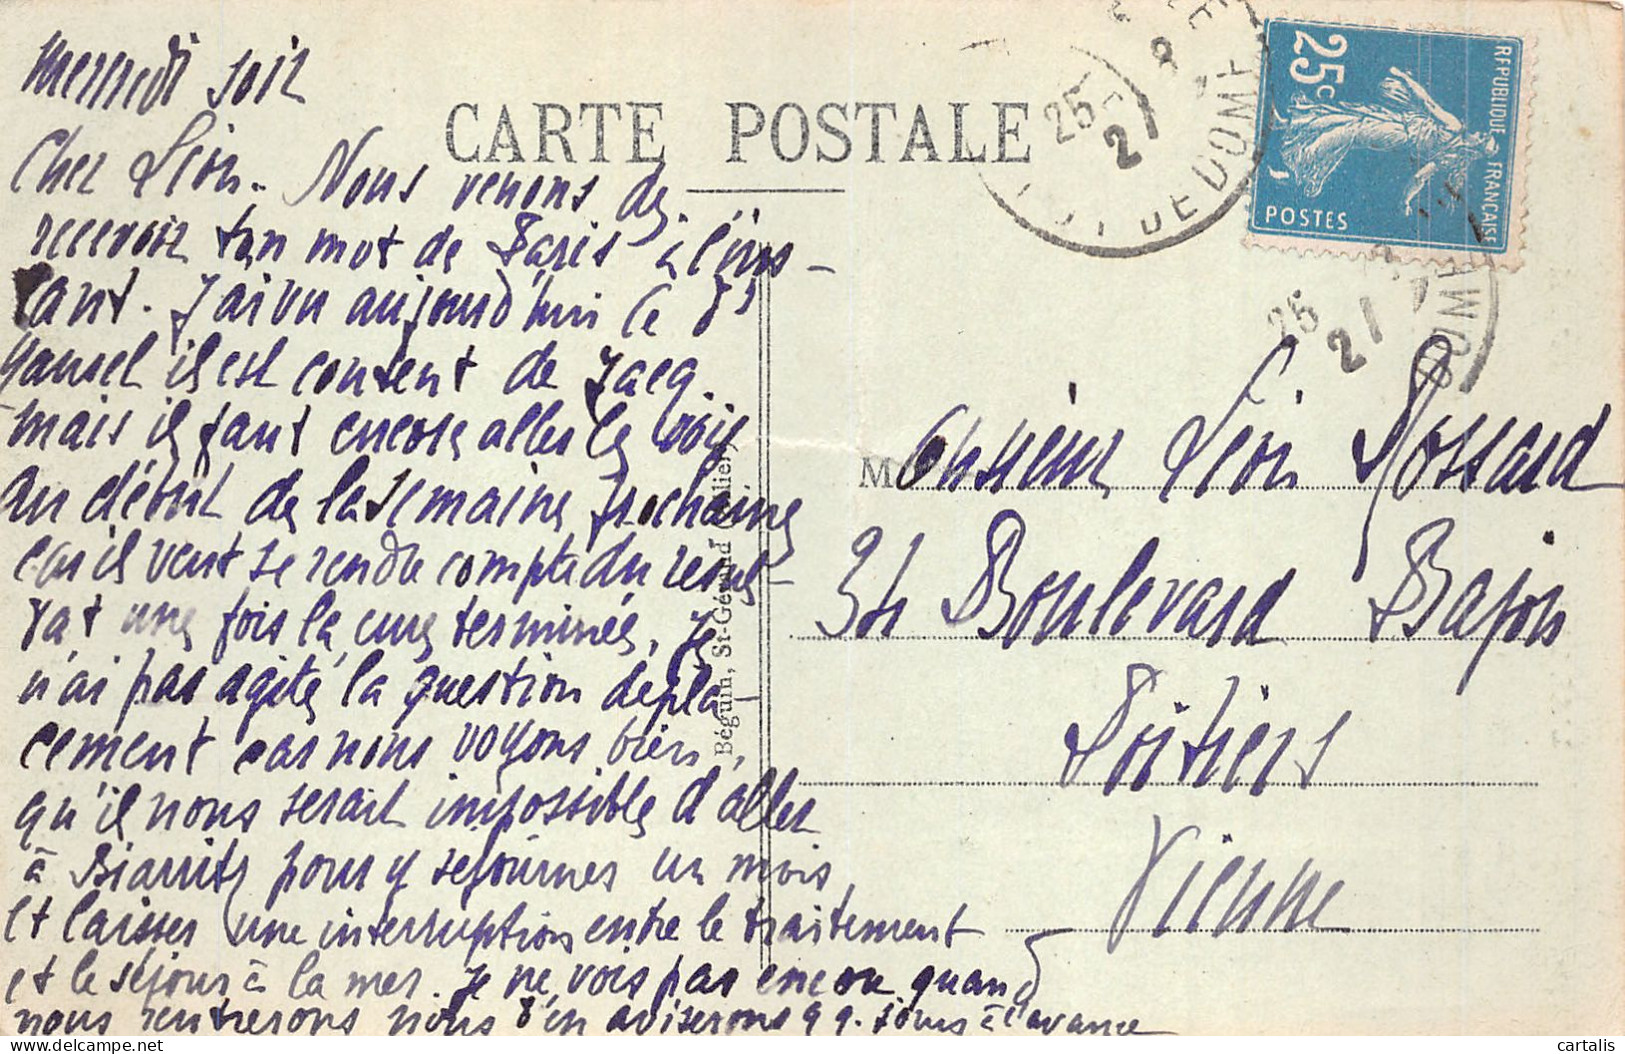 mercredi soir
CARTE POSTALE
Cher Léon. Nous venons de
recevoir ton mot de Paris à l'ins-
tant. J'ai vu aujourd'hui le Dr
il est content de Jacq.
mais il faut encore aller le voir
au début de la semaine prochaine
car il veut se rendre compte du resul-
tat une fois la cure terminée. Je
n'ai pas agité la question depla-
cement car nous voyons bien
qu'il nous serait impossible d'aller
à Biarritz pour y sejourner un mois,
et laisser une interruption entre le traitement
et le séjour à la mer. Je ne vois pas encore quand
nous rentrerons nous t'en aviserons qq. jours à l'avance
Béguin, St-Gérand (Allier)
25c
REPUBLIQUE FRANÇAISE
POSTES
25
21
PUY DE DOME
25
21
DOME
Monsieur Léon Rossard
34 Boulevard Bajon
Poitiers
Vienne
cartalis
delcampe.net